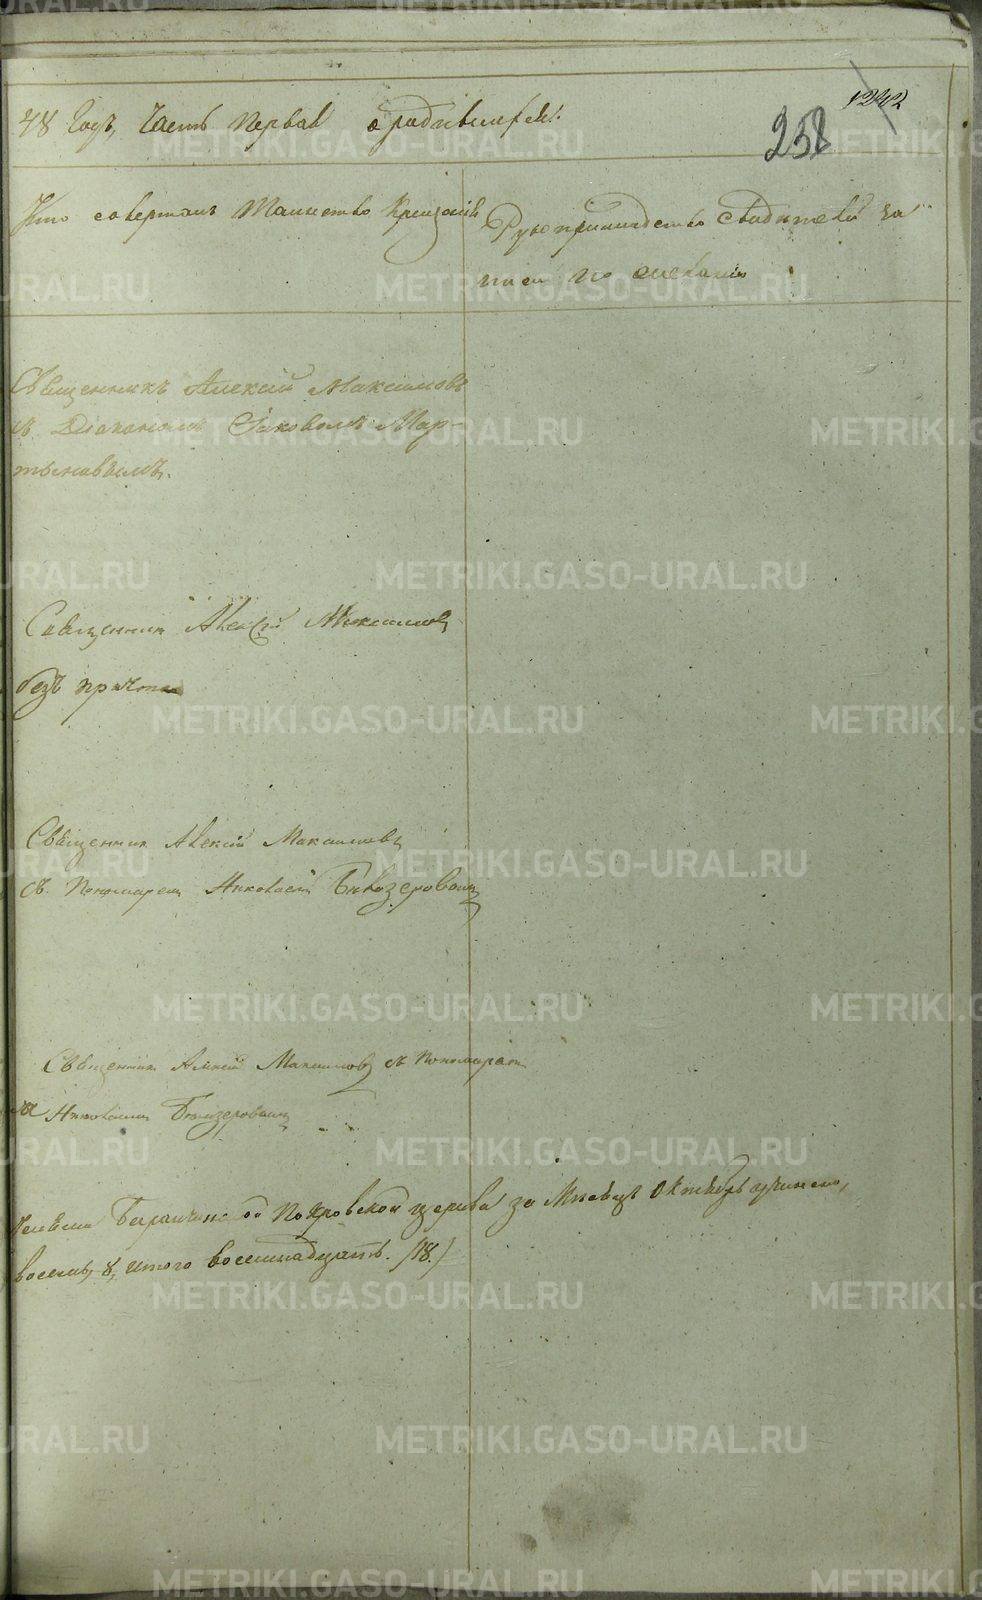 48 Годъ, Часть первая о родившихся.
1242
258
Кто совершалъ Таинство Крещенія
Рукоприкладство Свидѣтелей за
писи по желанію
Священникъ Алексій Максимовъ
съ Діакономъ Іаковомъ Мар-
тыновымъ.
Священник Алексій Максимовъ
безъ причта
Священник Алексій Максимовъ
съ Пономарем Николаем
Священник Алексій Максимов съ пономарем
Николаем
Баранчинской Покровской церкви за Мѣсяцъ Октябрь
восемь, 8, итого восемнадцать. /18./
METRIKI.GASO-URAL.RU